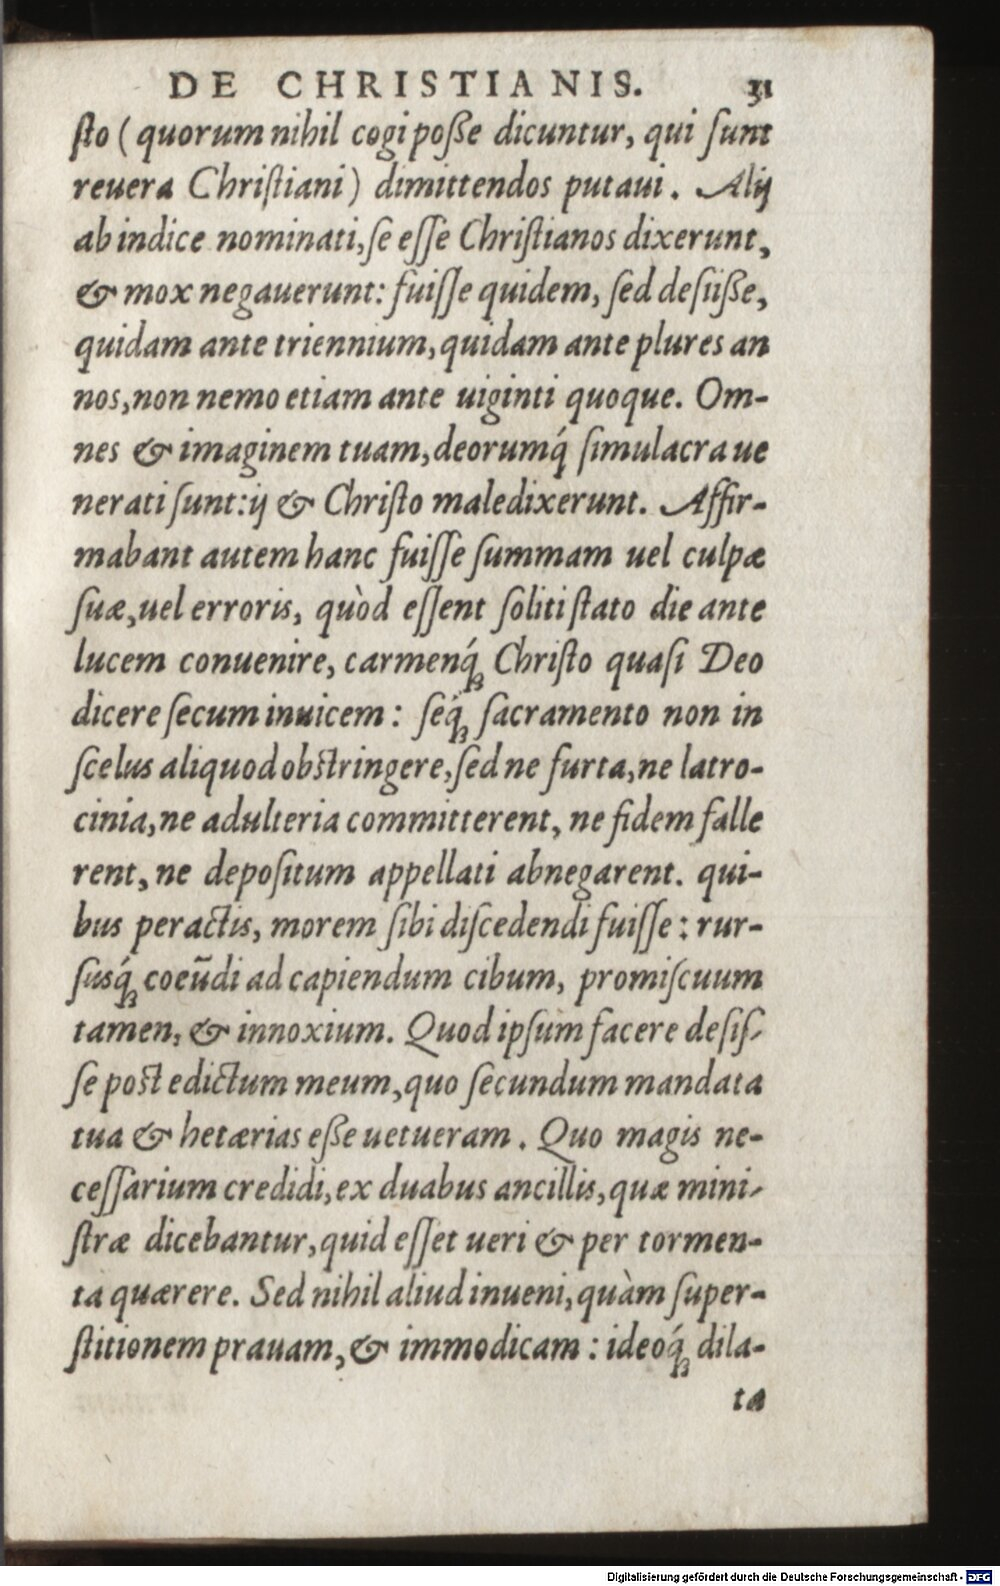 DE CHRISTIANIS. 31
ſto (quorum nihil cogi poße dicuntur, qui ſunt
reuera Chriſtiani) dimittendos putaui. Alij
ab indice nominati, ſe eſſe Chriſtianos dixerunt,
& mox negauerunt: fuiſſe quidem, ſed deſiiße,
quidam ante triennium, quidam ante plures an
nos, non nemo etiam ante uiginti quoque. Om-
nes & imaginem tuam, deorumq́ ſimulacra ue
nerati ſunt: ij & Chriſto maledixerunt. Affir-
mabant autem hanc fuiſſe ſummam uel culpæ
ſuæ, uel erroris, quòd eſſent ſoliti ſtato die ante
lucem conuenire, carmenq́; Chriſto quaſi Deo
dicere ſecum inuicem: ſeq́; ſacramento non in
ſcelus aliquod obſtringere, ſed ne furta, ne latro-
cinia, ne adulteria committerent, ne fidem falle
rent, ne depoſitum appellati abnegarent. qui-
bus peractis, morem ſibi diſcedendi fuiſſe: rur-
ſusq́; coeũdi ad capiendum cibum, promiſcuum
tamen, & innoxium. Quod ipſum facere deſiſ-
ſe poſt edictum meum, quo ſecundum mandata
tua & hetærias eße uetueram. Quo magis ne-
ceſſarium credidi, ex duabus ancillis, quæ mini-
ſtræ dicebantur, quid eſſet ueri & per tormen-
ta quærere. Sed nihil aliud inueni, quàm ſuper-
ſtitionem prauam, & immodicam: ideoq́; dila-
ta
Digitalisierung gefördert durch die Deutsche Forschungsgemeinschaft - DFG